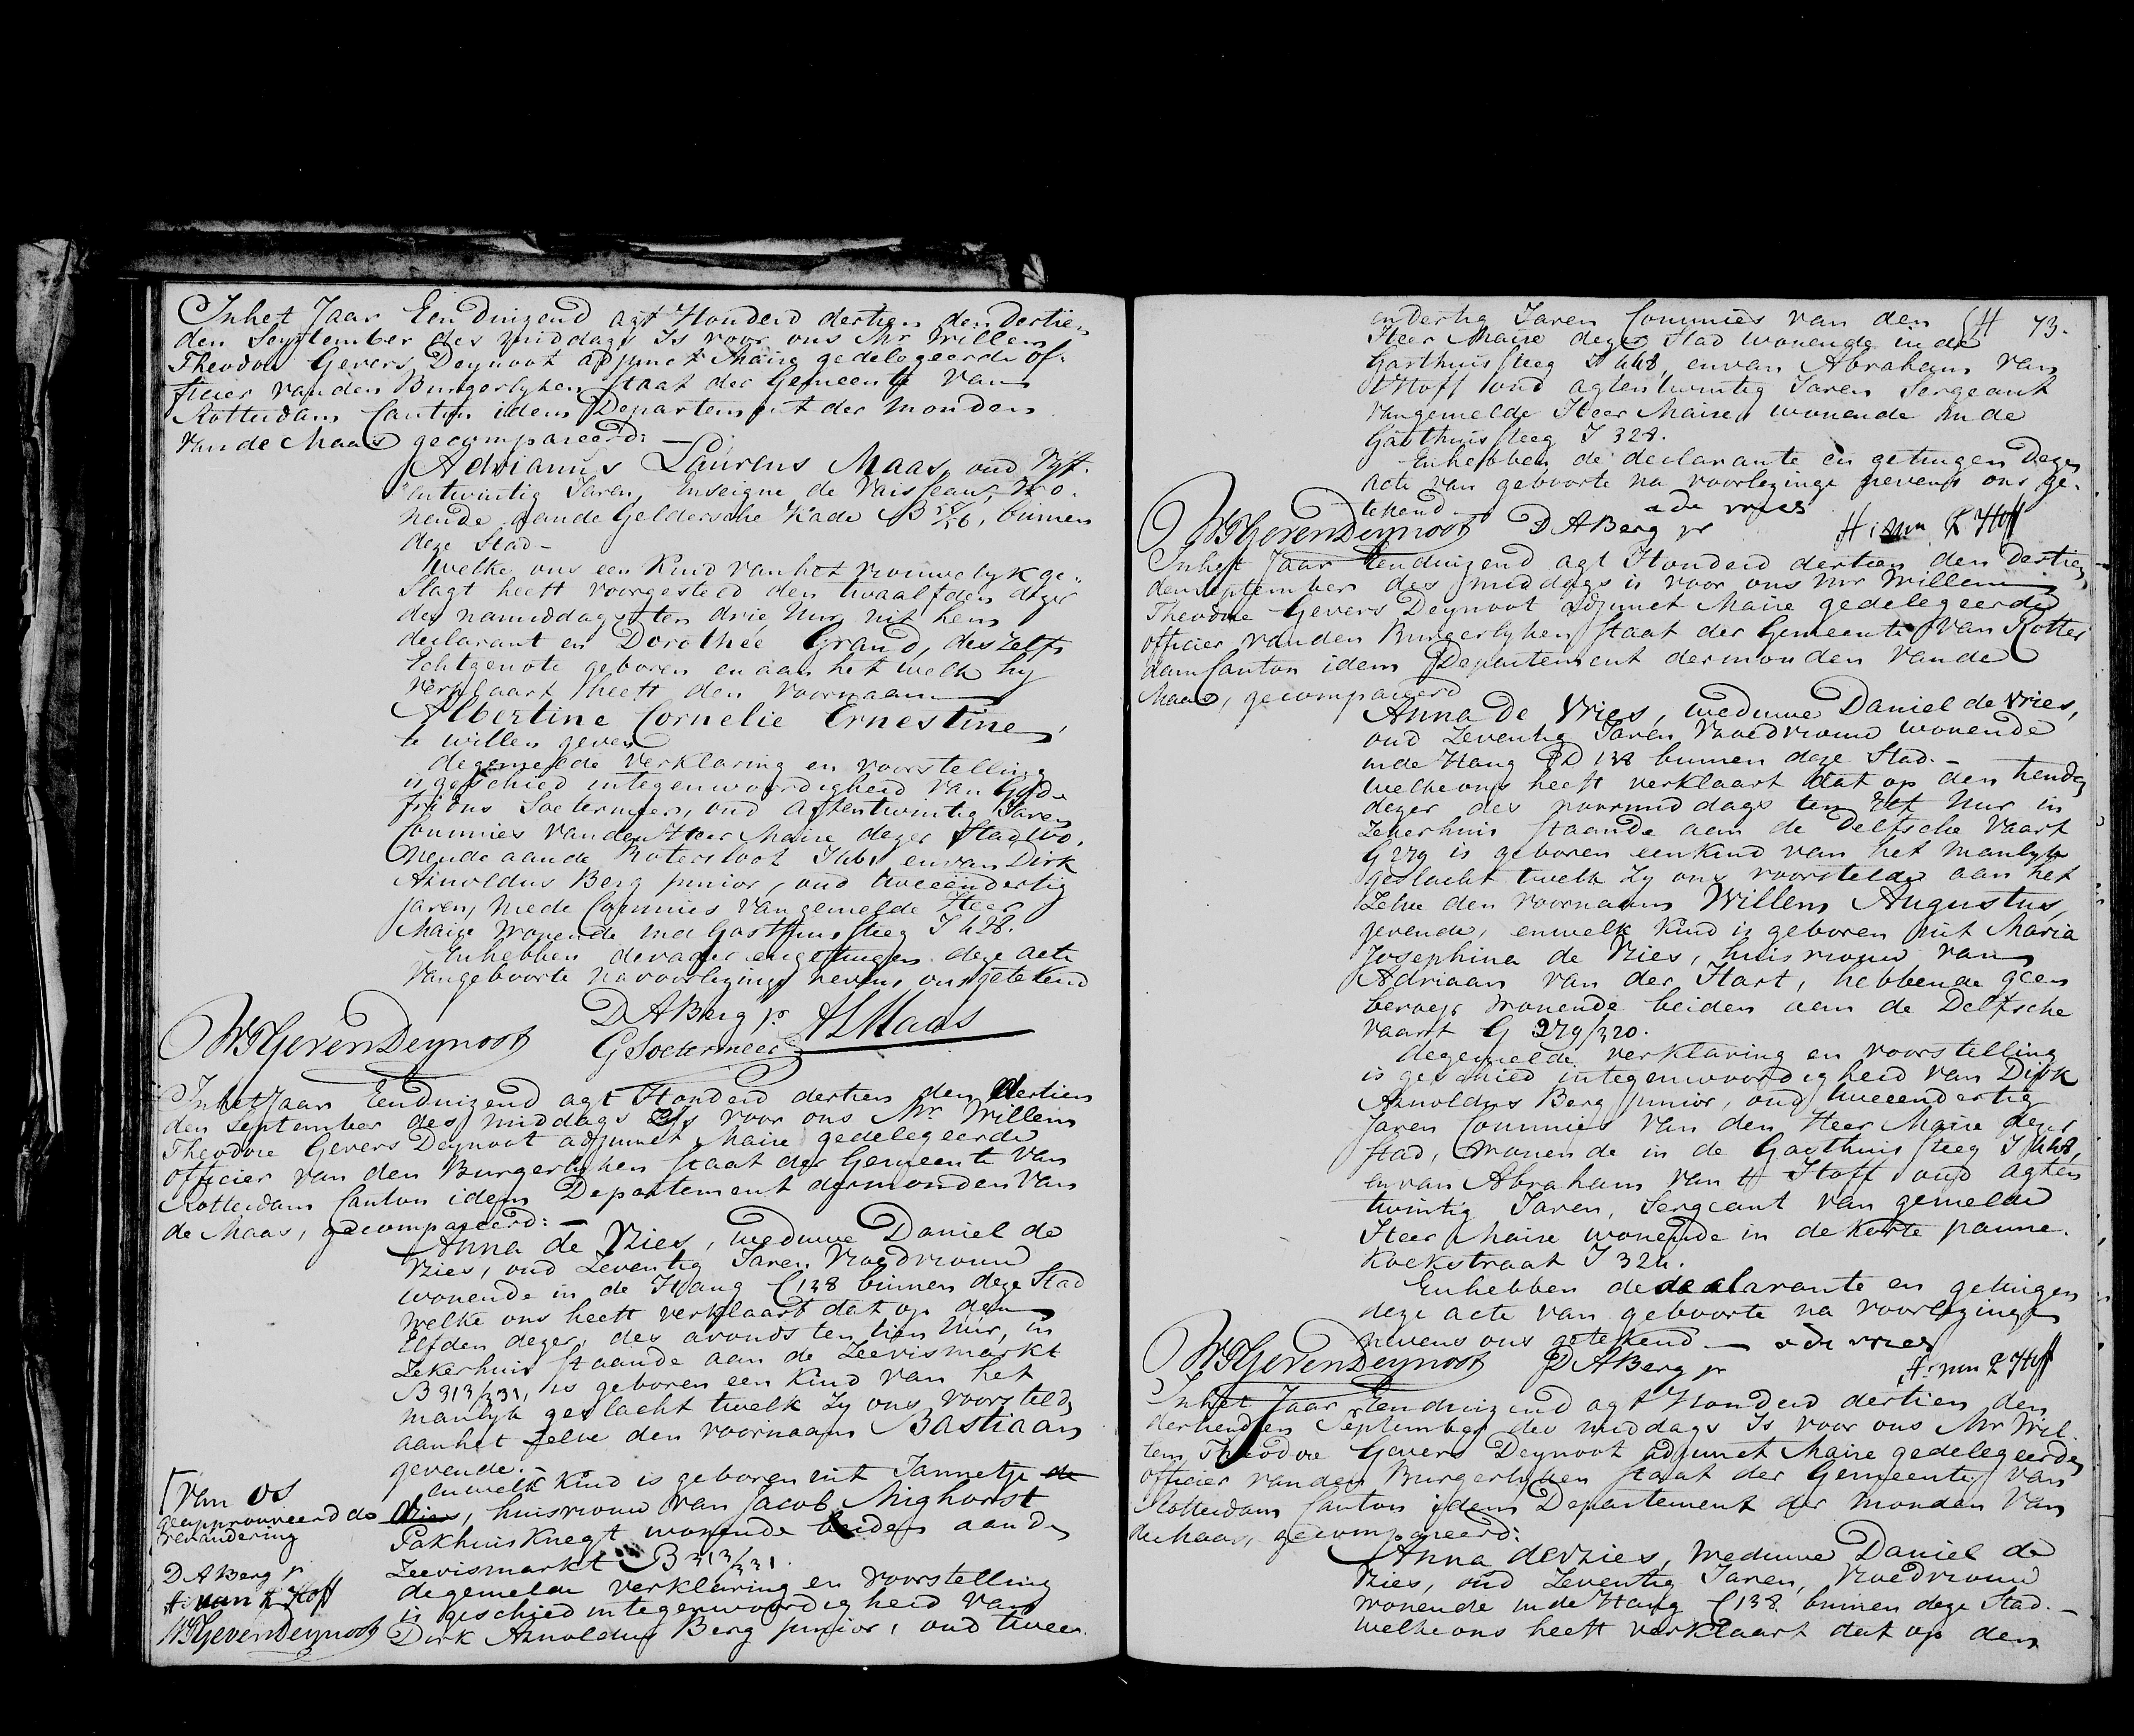 In het Jaar Een duizend agt Honderd dertien den dertien
den September des middags Is voor ons Mr Willem
Theodore Gevers Deynoot adjunct Maire gedelegeerde of-
ficier van den Burgerlyken staat der Gemeente van
Rotterdam Canton idem Departement der Monden
van de Maas gecompareerd: —
Adrianus Laurens Maas, oud Vyf-
entwintig Jaren, Enseigne de Vaisseau, wo-
nende aan de Geldersche Kade B 58/56, binnen
deze Stad —
Welke ons een Kind van het vrouwelyk ge-
slagt heeft voorgesteld den twaalfden dezer
des namiddags ten drie Uur uit hem
declarant en Dorothée Grand, deszelfs
Echtgenote geboren en aan het welk hy
verklaart heeft den voornaam
Albertine Cornelie Ernestine,
te willen geven
de gemelde verklaring en voorstelling
is geschied in tegenwoordigheid van
Soetermeer, oud agtentwintig Jaren
Commies van den Heer Maire dezer Stad wo-
nende aan de Rotersloot en van Dirk
Arnoldus Berg junior, oud tweeëndertig
jaren, mede Commies van gemelde Heer
Maire wonende in de Gasthuis steeg I 428.
En hebben de vader en getuigen deze acte
van geboorte na voorlezinge nevens ons getekend
WTGevers Deynoot
D A Berg jr
A L Maas
G Soetermeer
In het Jaar Eenduizend agt Honderd dertien den dertien
den September des middags Is voor ons Mr Willem
Theodore Gevers Deynoot adjunct Maire gedelegeerde
officier van den Burgerlyken staat der Gemeente van
Rotterdam Canton idem Departement der monden van
de Maas, gecompareerd: —
Anna de Vries, weduwe Daniel de
Vries, oud Zeventig Jaren Vroedvrouw
wonende in de Hang C 138 binnen deze Stad
Welke ons heeft verklaart dat op den
Elfden dezer, des avonds ten tien Uur, in
Zekerhuis staande aan de Zeevismarkt
B 313/331, is geboren een Kind van het
manlyk geslacht twelk zy ons voorstelde
aan het zelve den voornaam Bastiaan
gevende. —
en welk kind is geboren uit Jannetje de
Vries, huisvrouw van Jacob Mighorst
Pakhuisknegt wonende beiden aan de
Zeevismarkt B 313/331.
de gemelde verklaring en voorstelling
is geschied in tegenwoordigheid van
Dirk Arnoldus Berg junior, oud tween-
van Os
geapprouveerd de
verandering
D A Berg jr
A: van t Hoff
WTGevers Deynoot
73.
endertig Jaren Commies van den
Heer Maire dezer Stad wonende in de
Gasthuis steeg I 448, en van Abraham van
t Hoff oud agtentwintig Jaren Sergeant
van gemelde Heer Maire, wonende in de
Gasthuis steeg I 328.
En hebben de declarante en getuigen deze
acte van geboorte na voorlezinge nevens ons ge-
tekend —
a de vries
WTGevers Deynoot
D A Berg jr
A: van t Hoff
In het Jaar Eenduizend agt Honderd dertien den dertien
den September des middags is voor ons Mr Willem
Theodore Gevers Deynoot adjunct Maire gedelegeerde
officier van den Burgerlyken staat der Gemeente van Rotter
dam Canton idem Departement der monden van de
Maas, gecompareerd
Anna de Vries, weduwe Daniel de Vries,
oud Zeventig Jaren Vroedvrouw wonende
in de Hang D 138 binnen deze Stad. —
welke ons heeft verklaart dat op den tienden
dezer des voormiddags ten Elf Uur in
Zekerhuis staande aan de Delfsche vaart
G 279 is geboren een kind van het manlyk
geslacht twelk zy ons voorstelde aan het
zelve den voornaam Willem Augustus,
gevende, en welk Kind is geboren uit Maria
Josephina de Vries, huisvrouw van
Adriaan van der Start, hebbende geen
beroep wonende beiden aan de Delfsche
vaart G 279/320.
de gemelde verklaring en voorstelling
is geschied in tegenwoordigheid van Dirk
Arnoldus Berg junior, oud tweeendertig
Jaren Commies van den Heer Maire dezer
stad, wonende in de Gasthuis steeg I 448,
en van Abraham van t Hoff oud agten
twintig Jaren, Sergeant van gemelde
Heer Maire wonende in de Korte panne-
koekstraat I 324.
En hebben de declarante en getuigen
deze acte van geboorte na voorlezinge
nevens ons getekend — a de vries
WTGevers Deynoot
D A Berg jr
A: van t Hoff
In het Jaar Eenduizend agt Honderd dertien den
dertienden September des middags Is voor ons Mr Wil-
lem Theodore Gevers Deynoot adjunct Maire gedelegeerde
officier van den Burgerlyken staat der Gemeente van
Rotterdam Canton idem Departement der Monden van
de Maas, gecompareerd:
Anna de Vries, weduwe Daniel de
Vries, oud Zeventig Jaren, Vroedvrouw
wonende in de Hang C 138 binnen deze Stad. —
welke ons heeft verklaart dat op den